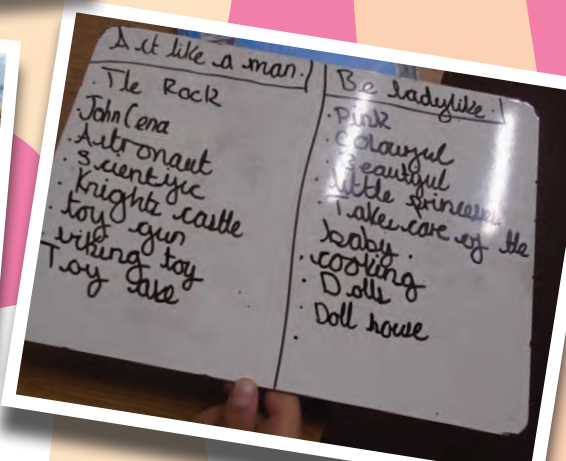 Act like a man.
· The Rock
· John Cena
· Astronaut
· Scientific
· Knights castle
· toy gun
· viking toy
Toy
Be ladylike.
· Pink
· Colourful
· Beautiful
· little princess
· Takes care of the
baby.
· cooking
· Dolls
· Doll house
·